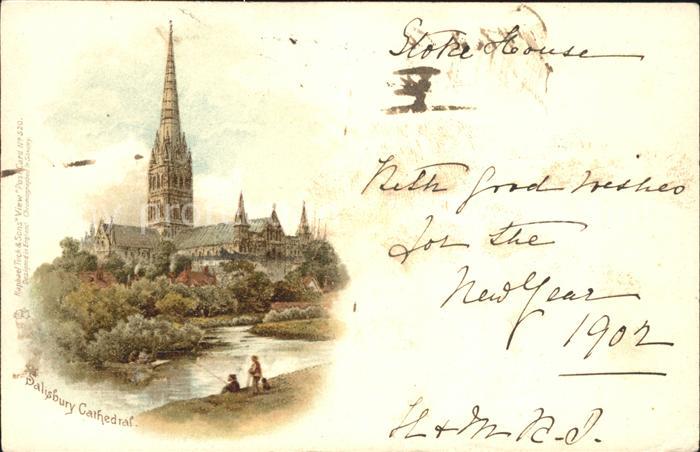 Stoke House
With good wishes
for the
New Year
1902
H & M R. J.
Raphael Tuck & Sons' "View" Postcard No 520.
Designed in England Chromographed in Saxony.
Salisbury Cathedral.